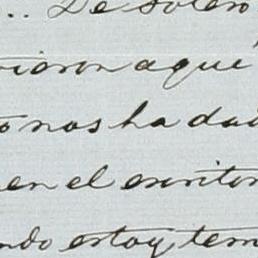 .. De soler
vieron aqui
o nos ha dad
en el escritor
ndo estoy tem